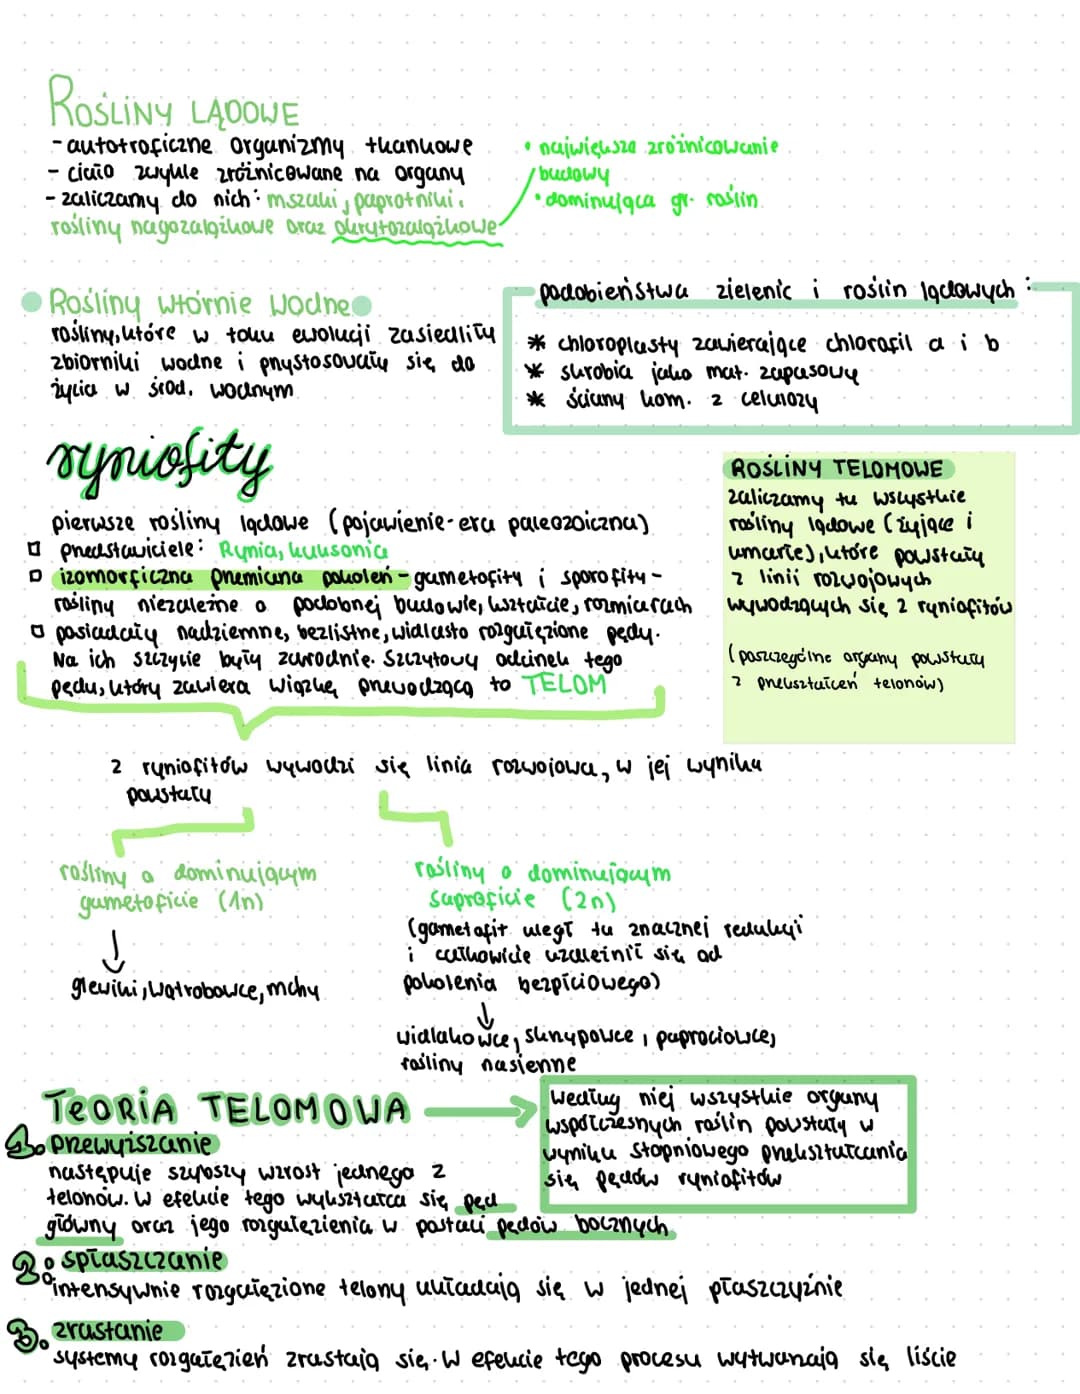 ROŚLINY LĄDOWE
- autotroficzne organizmy tkankowe
- ciało zwykle zróżnicowane na organy
- zaliczamy do nich: mszaki, paprotniki,
rośliny nagozalążkowe oraz okrytozalążkowe
• największe zróżnicowanie
budowy
• dominująca gr. roślin
Rośliny wtórnie wodne
rośliny, które w toku ewolucji zasiedliły
zbiorniki wodne i przystosowały się do
życia w środ. wodnym
podobieństwa zielenic i roślin lądowych:
* chloroplasty zawierające chlorofil a i b
* skrobia jako mat. zapasowy
* ściany kom. z celulozy
ryniofity
pierwsze rośliny lądowe (pojawienie-era paleozoiczna)
przedstawiciele: Rynia, kuksonia
izomorficzna przemiana pokoleń - gametofity i sporofity -
rośliny niezależne o podobnej budowie, kształcie, rozmiarach
posiadały nadziemne, bezlistne, widlasto rozgałęzione pędy.
Na ich szczycie były zarodnie. Szczytowy odcinek tego
pędu, który zawiera wiązkę przewodzącą to TELOM
ROŚLINY TELOMOWE
zaliczamy tu wszystkie
rośliny lądowe (żyjące i
umarłe), które powstały
z linii rozwojowych
wywodzących się z ryniofitów
(poszczególne organy powstały
z przekształceń telonów)
z ryniofitów wywodzi się linia rozwojowa, w jej wyniku
powstały
rośliny o dominującym
gametoficie (1n)
glewiki, wątrobowce, mchy
rośliny o dominującym
saproficie (2n)
(gametofit uległ tu znacznej redukcji
i całkowicie uzależnił się od
pokolenia bezpłciowego)
widłakowce, skrzypowce, paprociowce,
rośliny nasienne
TEORIA TELOMOWA
według niej wszystkie organy
współczesnych roślin powstały w
wyniku stopniowego przekształcania
się pędów ryniofitów
1. przewyższanie
następuje szybszy wzrost jednego z
telonów. W efekcie tego wykształca się pęd
główny oraz jego rozgałęzienia w postaci pędów bocznych
2. spłaszczanie
intensywnie rozgałęzione telony układają się w jednej płaszczyźnie
3. zrastanie
systemy rozgałęzień zrastają się. W efekcie tego procesu wytwarzają się liście